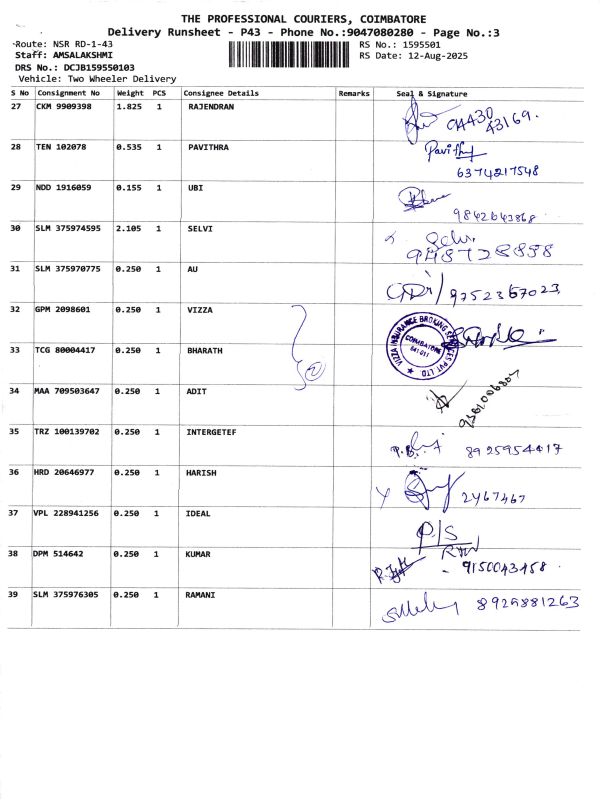 THE PROFESSIONAL COURIERS, COIMBATORE
Delivery Runsheet - P43 - Phone No.:9047080280 - Page No.:3
Route: NSR RD-1-43 RS No.: 1595501
Staff: AMSALAKSHMI RS Date: 12-Aug-2025
DRS No.: DCJB159550103
Vehicle: Two Wheeler Delivery
S No Consignment No Weight PCS Consignee Details Remarks Seal & Signature
27 CKM 9909398 1.825 1 RAJENDRAN
28 TEN 102078 0.535 1 PAVITHRA Pavithy
6374217548
29 NDD 1916059 0.155 1 UBI
9842643868
30 SLM 375974595 2.105 1 SELVI Selvi
31 SLM 375970775 0.250 1 AU
9752367023
32 GPM 2098601 0.250 1 VIZZA
VIZZA INSURANCE BROKING SERVICES PVT LTD
COIMBATORE
641 011
33 TCG 80004417 0.250 1 BHARATH
2
34 MAA 709503647 0.250 1 ADIT
35 TRZ 100139702 0.250 1 INTERGETEF
8925954417
36 HRD 20646977 0.250 1 HARISH
2467467
37 VPL 228941256 0.250 1 IDEAL P/S
38 DPM 514642 0.250 1 KUMAR
9150043458
39 SLM 375976305 0.250 1 RAMANI
8925881263